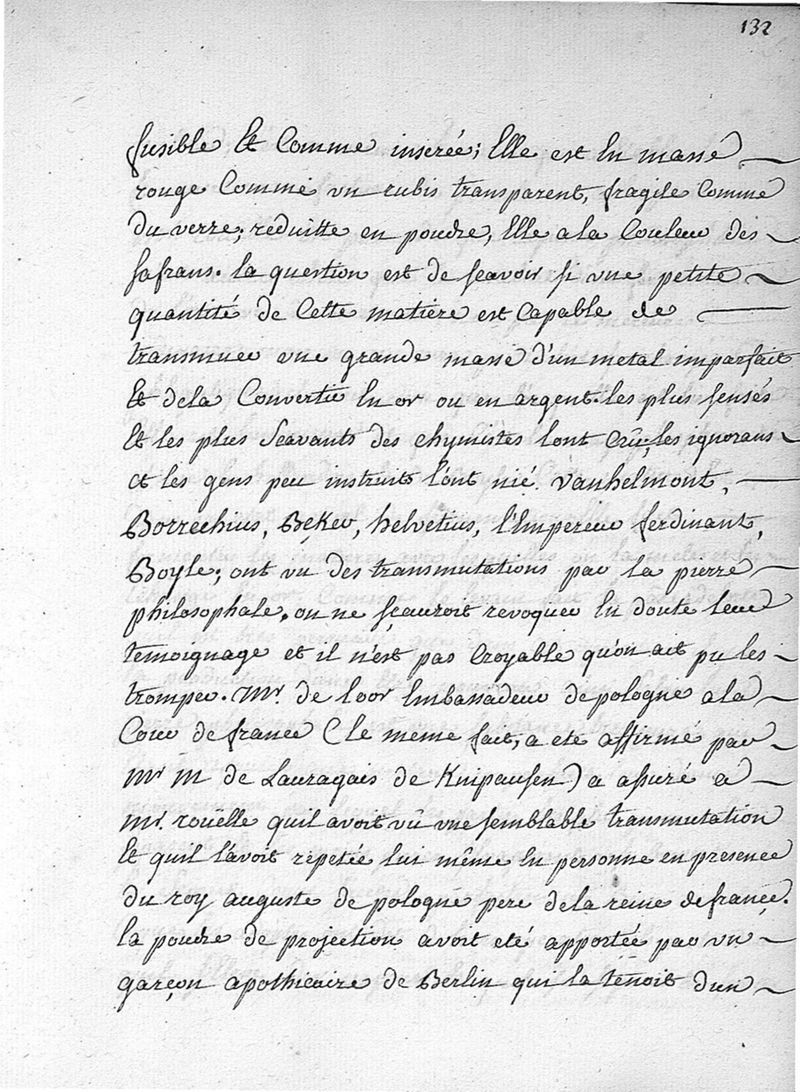 132
fusible Et Comme inserée; Elle est En masse
rouge Comme un rubis transparent, fragile Comme
du verre; réduitte en poudre, Elle a la Couleur des
safrans. la question est de scavoir si une petite
quantité de Cette matiere est Capable de
transmuer une grande masse d'un metal imparfait
Et de la Convertir En or ou en argent. les plus sensés
Et les plus Scavants des chymistes lont Crû; les ignorans
et les gens peu instruits l'ont nié. Vanhelmont,
Borrechius, Béker, helvetius, l'Empereur ferdinant,
Boyle; ont vu des transmutations par la pierre
philosophale. on ne scauroit revoquer En doute leur
temoignage et il n'est pas Croyable qu'on ait pu les
tromper. Mr. de loor Embassadeur de pologne a la
Cour de france (le meme fait, a eté affirmé par
Mr M de Lauragais de Knipausen) a assuré a
Mr. rouelle quil avoit vû une semblable transmutation
Et quil l'avoit repetée lui même En personne en presence
du roy auguste de pologne pere de la reine de france.
la poudre de projection avoit eté apportée par un
garçon apothicaire de Berlin qui la tenoit dun